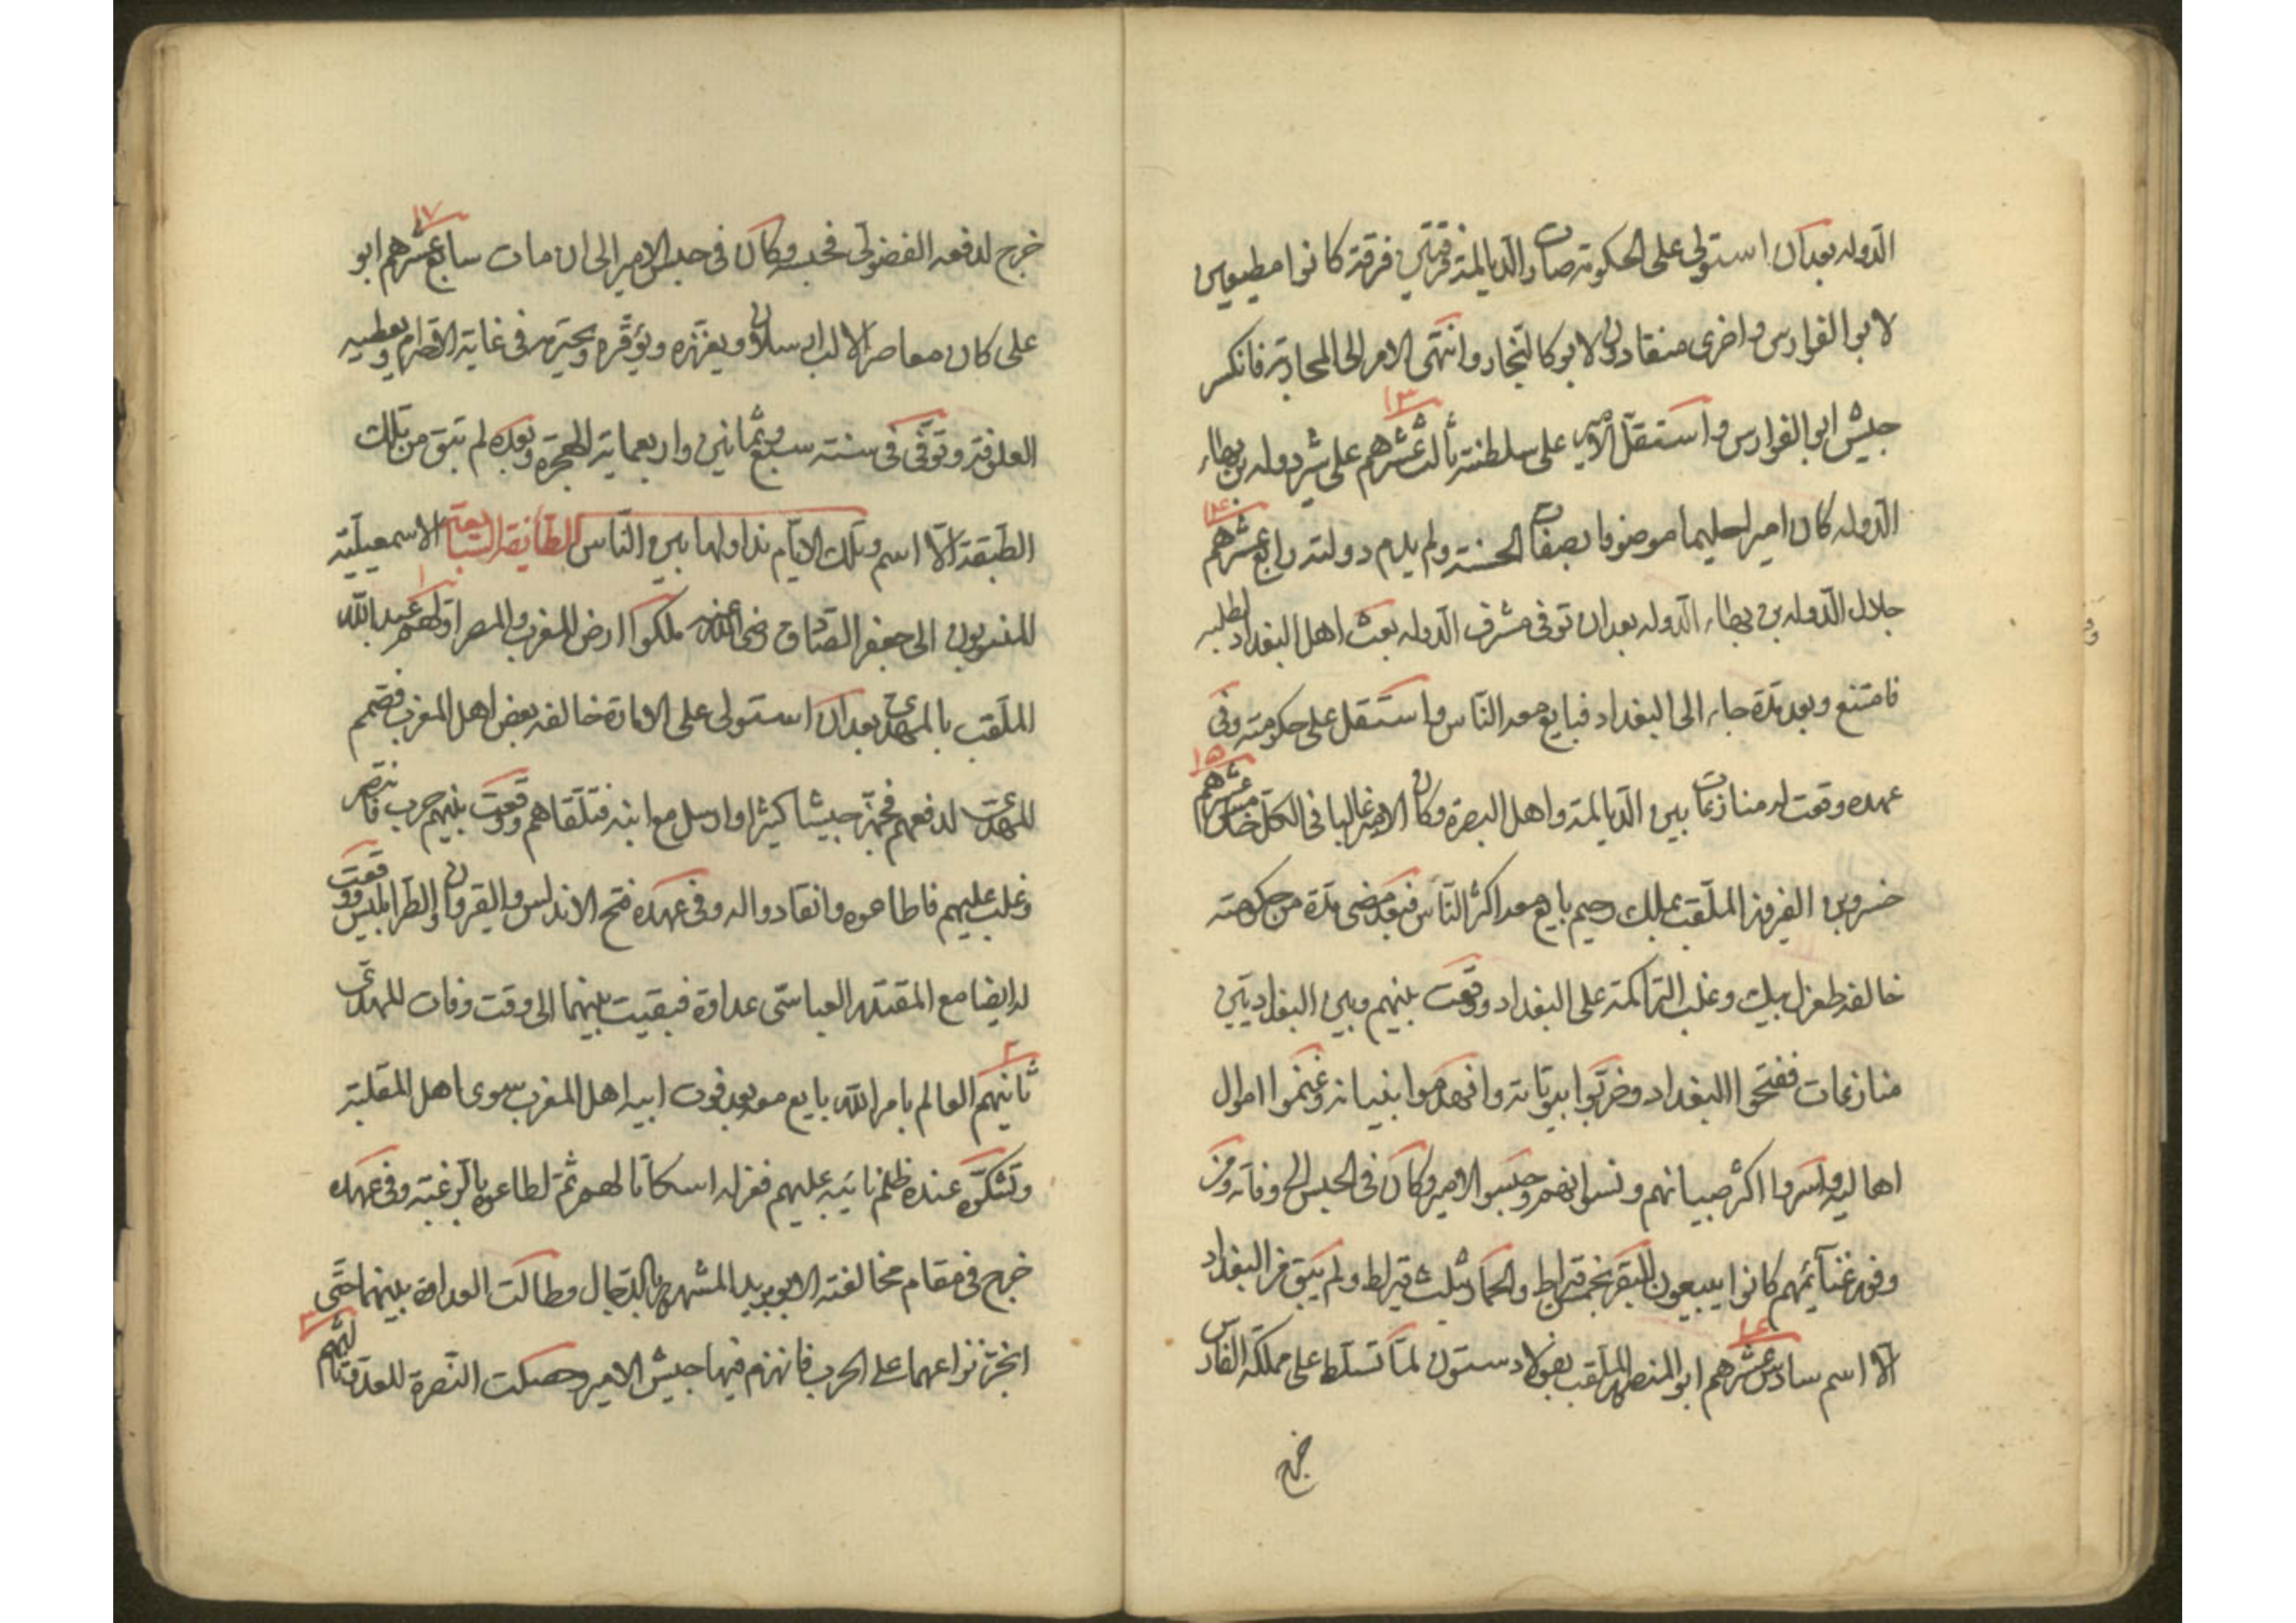 الدوله بعد ان استولى على الحكومة صارت الديالمة فرقتين فرقة كانوا مطيعين
لابو الفوارس واخرى منقادون لابو كالنجار وانتهى الامر الى المحاربة فانكسر
١٣
جيش ابو الفوارس واستقل الامير على سلطنته ثالث عشرهم على شير دوله بن بهاء
الدوله كان اميرا حليما موصوفا بصفات الحسنة ولم يدم دولته رابع عشرهم
١٤
جلال الدوله بن بهاء الدوله بعد ان توفى مشرف الدوله بعث اهل البغداد لطلبه
فامتنع وبعد مدة جاء الى البغداد فبايع معه الناس واستقل على حكومته وفى
١٥
عهده وقعت له منازعات بين الديالمة واهل البصرة وكان الامير غالبا فى الكل خامس عشرهم
خسرو بن الفيروز الملقب بملك رحيم بايع معه اكثر الناس فبعد مضى مدة من حكومته
خالفه طغرل بيك وغلب التراكمة على البغداد ووقعت بينهم وبين البغداديين
منازعات ففتحوا البغداد وخربوا بيوتاته وانهدموا بنيانه وغنموا اموال
اهاليه واسروا اكثر صبيانهم ونسوانهم وحبسوا الامير وكان فى الحبس الى وفاته ومن
وفور غنآئمهم كانوا يبيعون البقر بخمس قيراط والحمار بثلث قيراط ولم يبق من البغداد
١٦
الا اسم سادس عشرهم ابو المنصور الملقب بفولاد ستون لما تسلط على مملكة الفارس
خرج
١٧
خرج لدفعه الفضولى فحبسه وكان فى حبس الامير الى ان مات سابع عشرهم ابو
على كان معاصرا لالب ارسلان ويعززه ويوقره ويحترمه فى غاية الاحترام ويعطيه
العلوفة وتوفى فى سنة سبع وثمانين واربعماية للهجرة وبعده لم تبق من تلك
الطبقة الا اسم وتلك الايام نداولها بين الناس الطائفة السابعة الاسمعيلية
١
المنسوبون الى جعفر الصادق رضى الله عنه ملكوا ارض المغرب والمصر اولهم عبد الله
الملقب بالمهدى بعد ان استولى على الامارة خالفه بعض اهل المغرب فصمم
المهدى لدفعهم فجهز جيشا كثيرا وارسل مع ابنه فتلقاهم ووقعت بينهم حرب فانتصر
وغلب عليهم فاطاعوه وانقادوا له وفى عهده فتح الاندلس والقيروان والطرابلس ووقعت
له ايضا مع المقتدر العباسى عداوة فبقيت بينهما الى وقت وفات المهدى
٢
ثانيهم العالم بامر الله بايع معه بعد فوت ابيه اهل المغرب سوى اهل المقلية
وتشكوه عنده ظلم نائبه عليهم فعزله اسكاتا لهم ثم اطاعوه بالرغبة وفى عهده
خرج فى مقام مخالفته الابو يزيد المشهور بالدجال وطالت العداوة بينهما حتى
٣
انجر نزاعهما على الحرب فانهزم فيها جيش الامير وحصلت النصرة للعدو ثالثهم